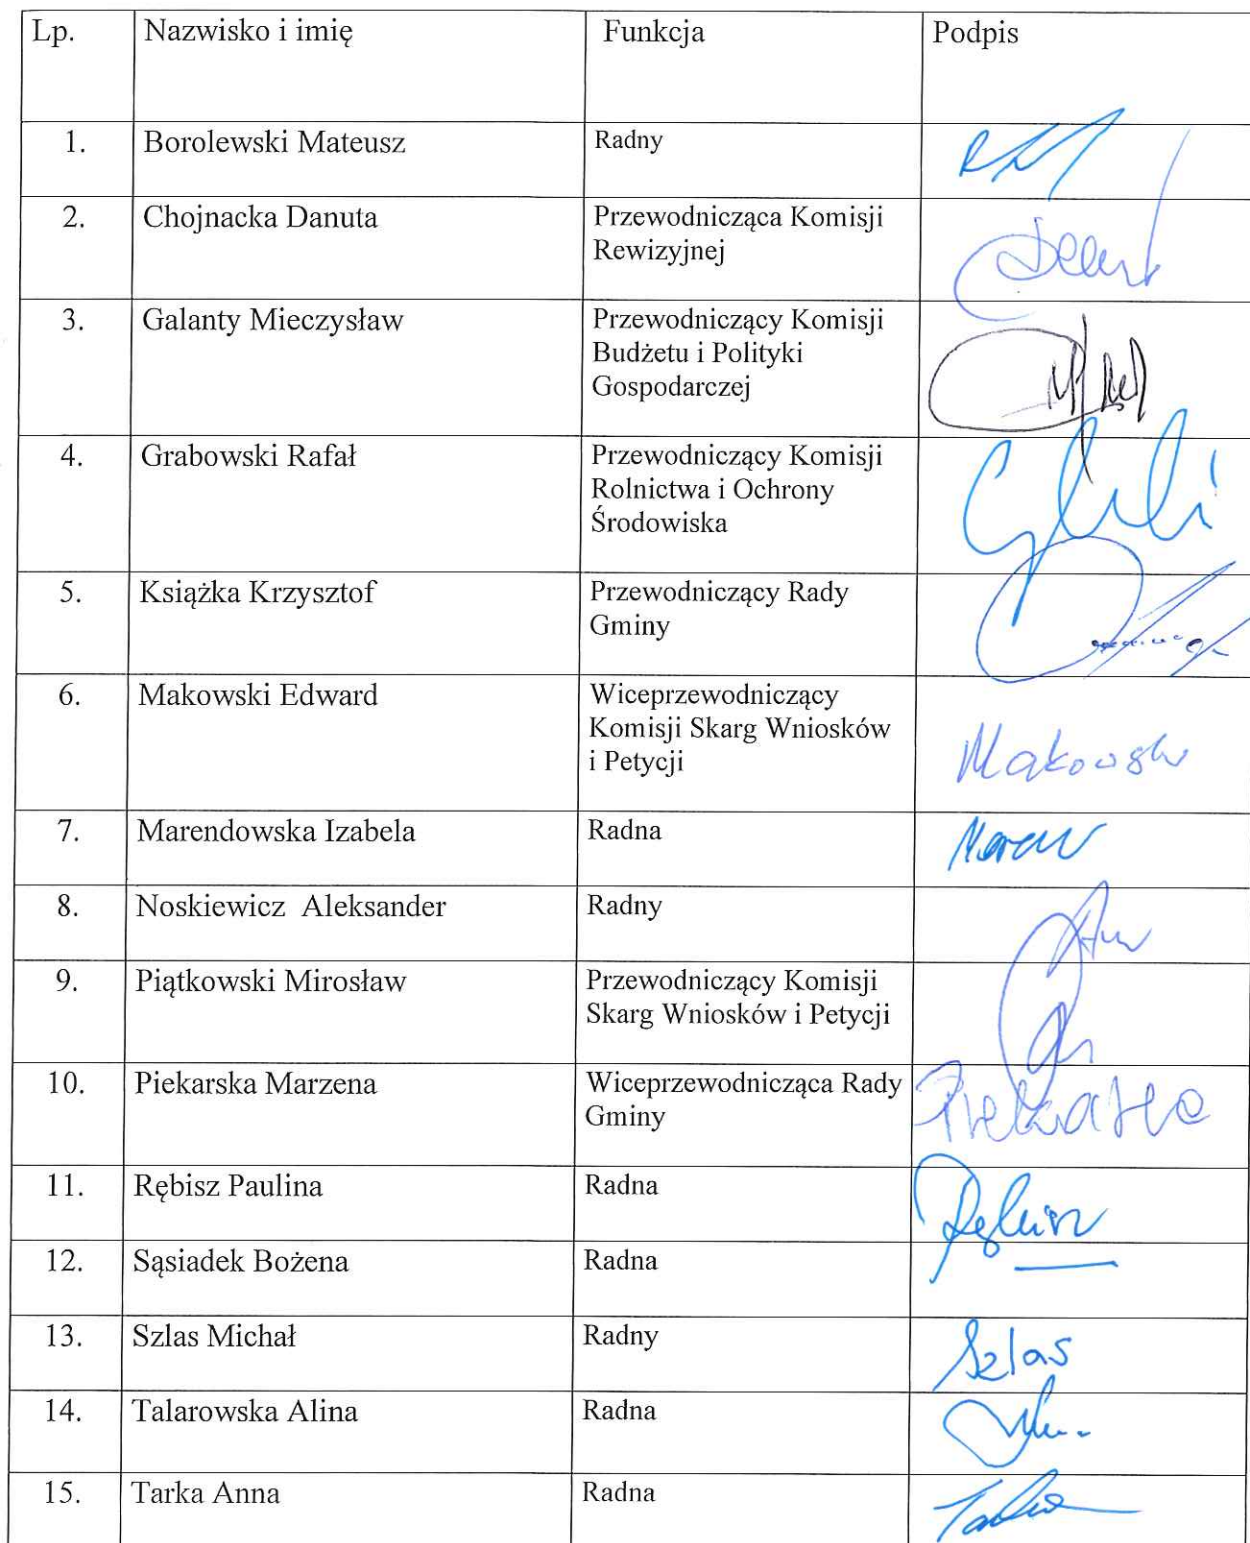 Lp. Nazwisko i imię Funkcja Podpis
1. Borolewski Mateusz Radny
2. Chojnacka Danuta Przewodnicząca Komisji
Rewizyjnej
3. Galanty Mieczysław Przewodniczący Komisji
Budżetu i Polityki
Gospodarczej
4. Grabowski Rafał Przewodniczący Komisji
Rolnictwa i Ochrony
Środowiska
5. Książka Krzysztof Przewodniczący Rady
Gminy
6. Makowski Edward Wiceprzewodniczący
Komisji Skarg Wniosków
i Petycji
Makowski
7. Marendowska Izabela Radna
8. Noskiewicz Aleksander Radny
9. Piątkowski Mirosław Przewodniczący Komisji
Skarg Wniosków i Petycji
10. Piekarska Marzena Wiceprzewodnicząca Rady
Gminy
11. Rębisz Paulina Radna
12. Sąsiadek Bożena Radna
13. Szlas Michał Radny Szlas
14. Talarowska Alina Radna
15. Tarka Anna Radna